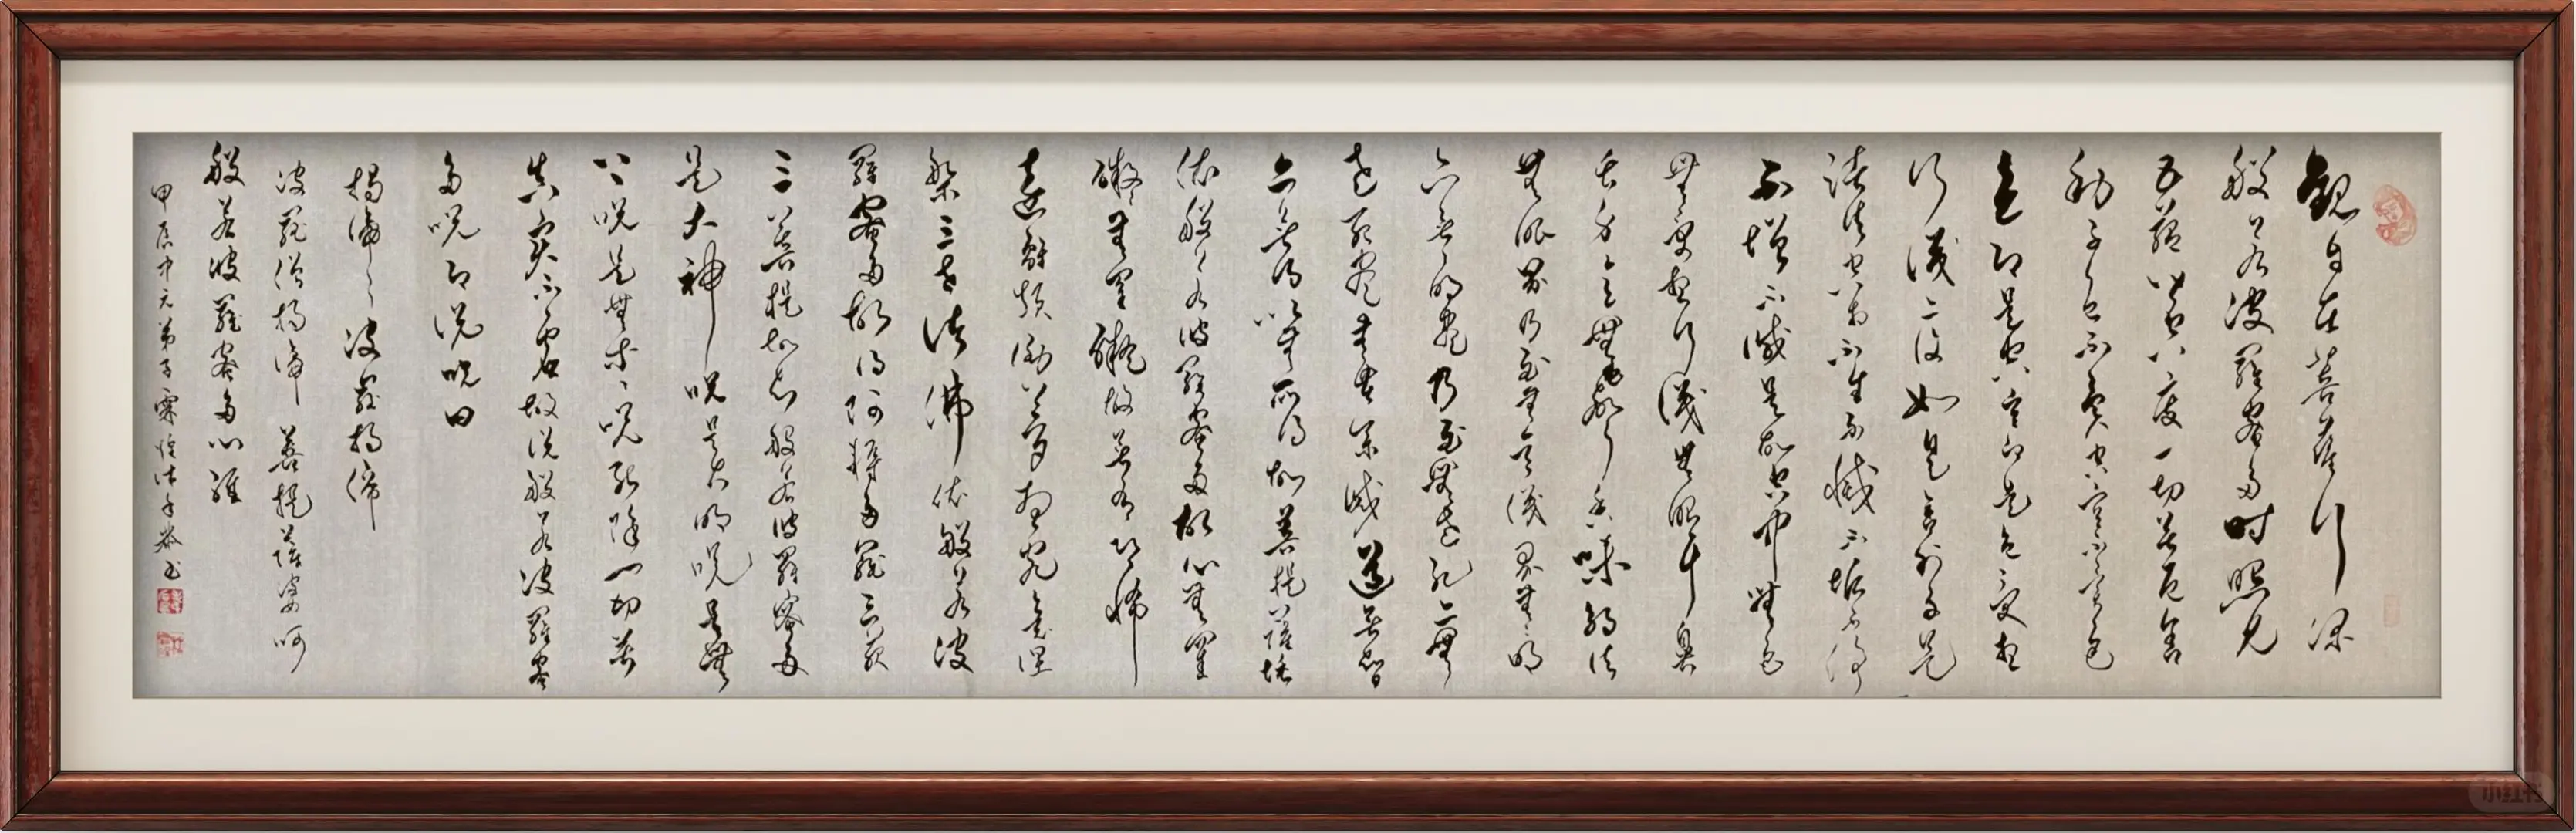 觀自在菩薩行深
般若波羅蜜多时照見
五蘊皆空度一切苦厄舍
利子色不異空空不異色
色即是空空即是色受想
行識亦復如是舍利子是
諸法空相不生不滅不垢不淨
不增不減是故空中無色
無受想行識無眼耳鼻
舌身意無色聲香味觸法
無眼界乃至無意識界無無明
亦無無明盡乃至無老死亦無
老死盡無苦集滅道無智
亦無得以無所得故菩提薩埵
依般若波羅蜜多故心無罣
礙無罣礙故無有恐怖
遠離顛倒夢想究竟涅
槃三世諸佛依般若波
羅蜜多故得阿耨多羅三藐
三菩提故知般若波羅蜜多
是大神呪是大明呪是無
上呪是無等々呪能除一切苦
真實不虛故說般若波羅蜜
多呪即說呪曰
揭諦々々波羅揭諦
波羅僧揭諦 菩提薩婆呵
般若波羅蜜多心經
甲辰中元弟子霖沐手恭書
小红书